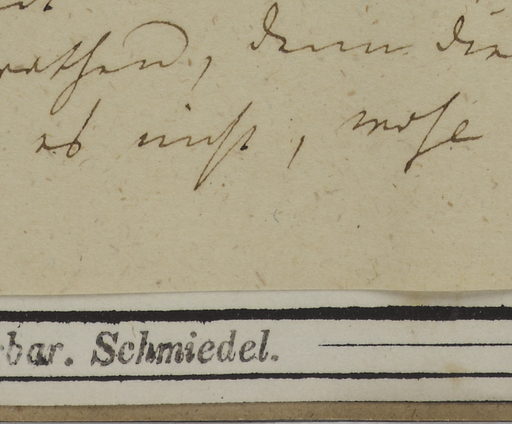 rathen, denn die
es nicht, wohl
rbar. Schmiedel.